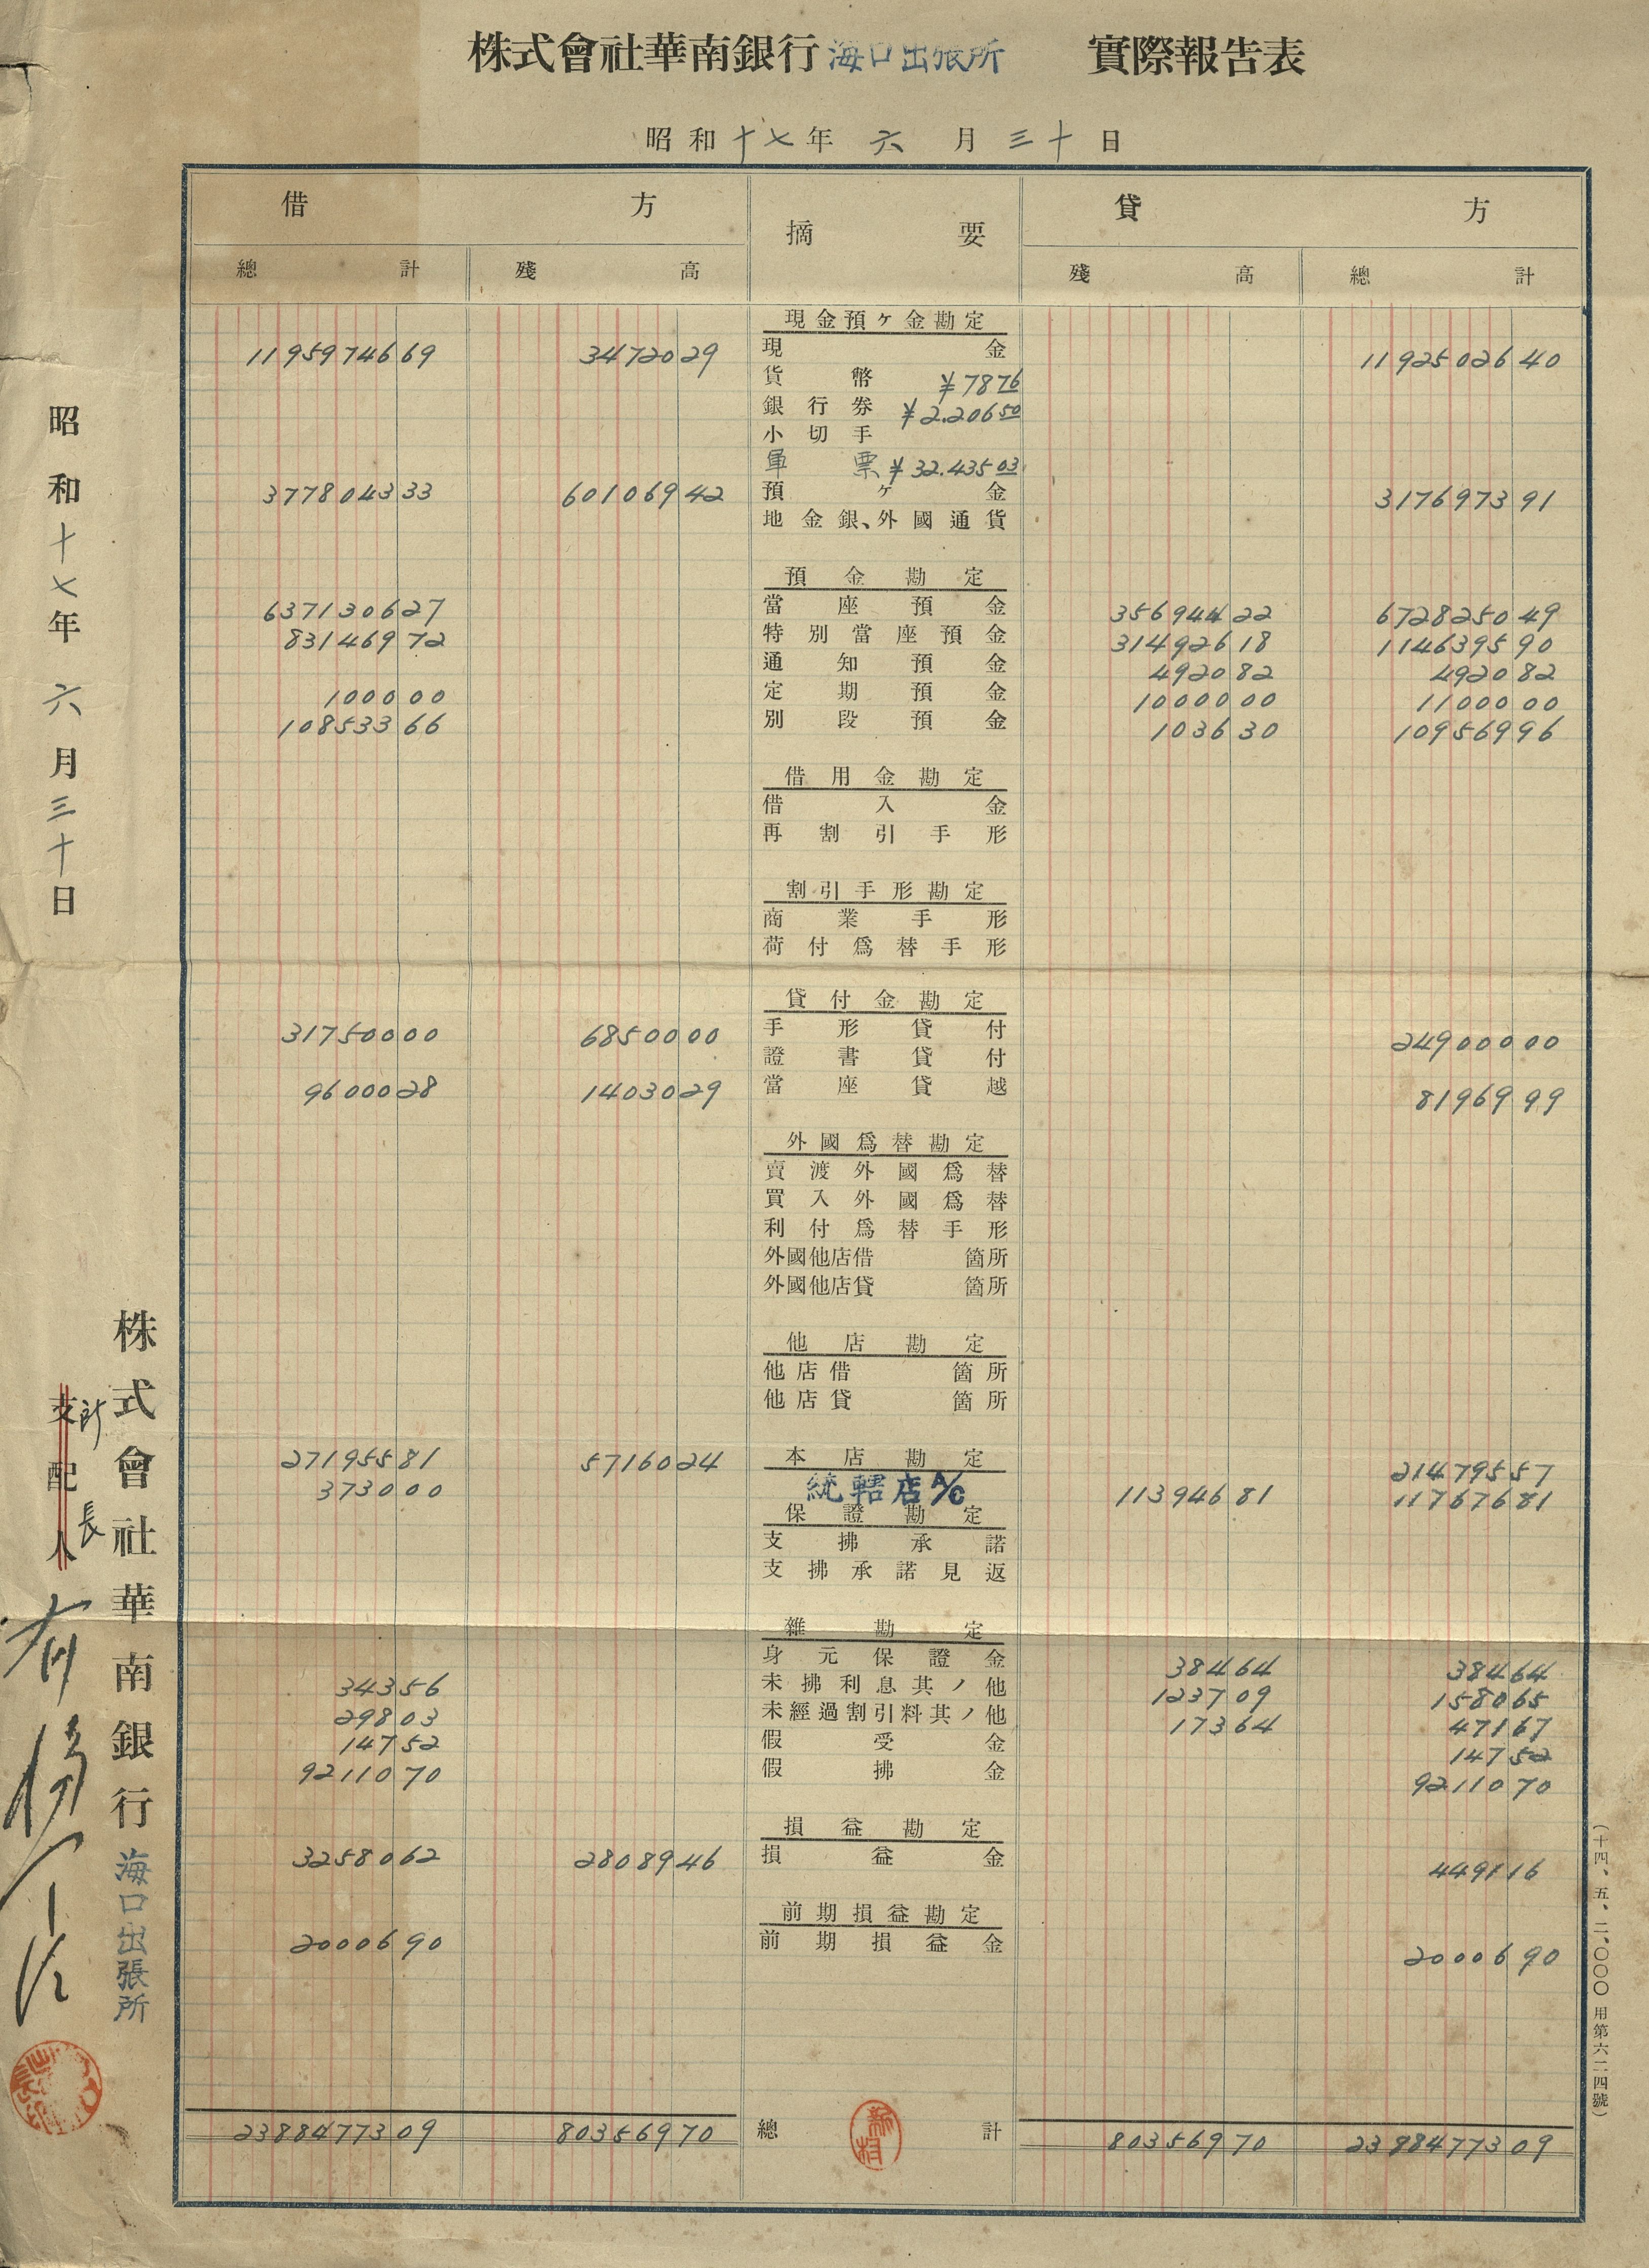 株式會社華南銀行 海口出張所 實際報告表
昭和十七年 六 月 三十 日
借方 摘要 貸方
總計 殘高 殘高 總計
現金預ヶ金勘定
11959746 69 34720 29 現金 11925026 40
貨幣 ¥7876
銀行券 ¥2.20650
小切手
軍票 ¥32.43503
3778043 33 601069 42 預ヶ金 3176973 91
地金銀、外國通貨
預金勘定
6371306 27 當座預金 356944 22 6728250 49
831469 72 特別當座預金 314926 18 1146395 90
通知預金 4920 82 4920 82
1000 00 定期預金 10000 00 11000 00
108533 66 別段預金 1036 30 109569 96
借用金勘定
借入金
再割引手形
割引手形勘定
商業手形
荷付爲替手形
貸付金勘定
317500 00 68500 00 手形貸付 249000 00
證書貸付
96000 28 14030 29 當座貸越 81969 99
外國爲替勘定
賣渡外國爲替
買入外國爲替
利付爲替手形
外國他店借 箇所
外國他店貸 箇所
他店勘定
他店借 箇所
他店貸 箇所
271955 81 57160 24 本店勘定 214795 57
3730 00 統轄店A/C 113946 81 117676 81
保證勘定
支拂承諾
支拂承諾見返
雜勘定
身元保證金 384 64 384 64
343 56 未拂利息其ノ他 1237 09 1580 65
298 03 未經過割引料其ノ他 173 64 471 67
147 52 假受金 147 52
92110 70 假拂金 92110 70
損益勘定
32580 62 28089 46 損益金 4491 16
前期損益勘定
20006 90 前期損益金 20006 90
23884773 09 803569 70 總計 803569 70 23884773 09
昭和十七年 六 月 三十 日
株式會社華南銀行 海口出張所
支配人
所長
(十四、五、二、〇〇〇 用第六二四號)